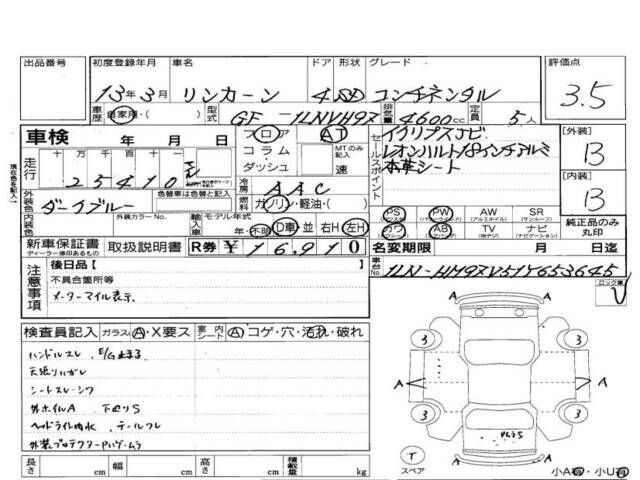 出品番号 初度登録年月 車名 ドア 形状 グレード 評価点
13年3月 リンカーン 4 SD コンチネンタル 3.5
車歴 自家用・( ) 型式 GF-1LNVH97 排気量 4600cc 定員 5人
車検 年 月 日 フロア AT セールスポイント イクリプスナビ [外装] B
走行 十万 万 千 百 十 コラム MTのみ記入 レオンハルト18インチアルミ
25410 ダッシュ 速 本革シート
現在色を記入 外装色 ダークブルー 色替車は色替と記入 冷房 AAC [内装] B
燃料 ガソリン・軽油・( )
内装色 外装カラーNo. 輸入車 モデル年式 年・不明 D車・並 右H 左H
PS PW AW SR
(パワステ) (パワーウインド) (アルミホイル) (サンルーフ)
カワ AB TV ナビ 純正品のみ丸印
(エアバッグ) (ナビゲーション)
新車保証書 取扱説明書 R券 ¥16,910 名変期限 月 日迄
ディーラー捺印あるもの
車台No. 1LN-HM97V51Y653645
注意事項 後日品【 】 ロック車
不具合箇所等
メーターマイル表示。
検査員記入 ガラス A・X要ス 室内シート A コゲ・穴・汚れ・破れ
ハンドルスレ
天張りハガレ
シートスレ・シワ
外ホイルA 下廻りS
ヘッドライト内水 テールワレ
3 3
A A
3 3
T
スペア
小A有・小U有
長さ cm 幅 cm 高さ cm 積載量 kg